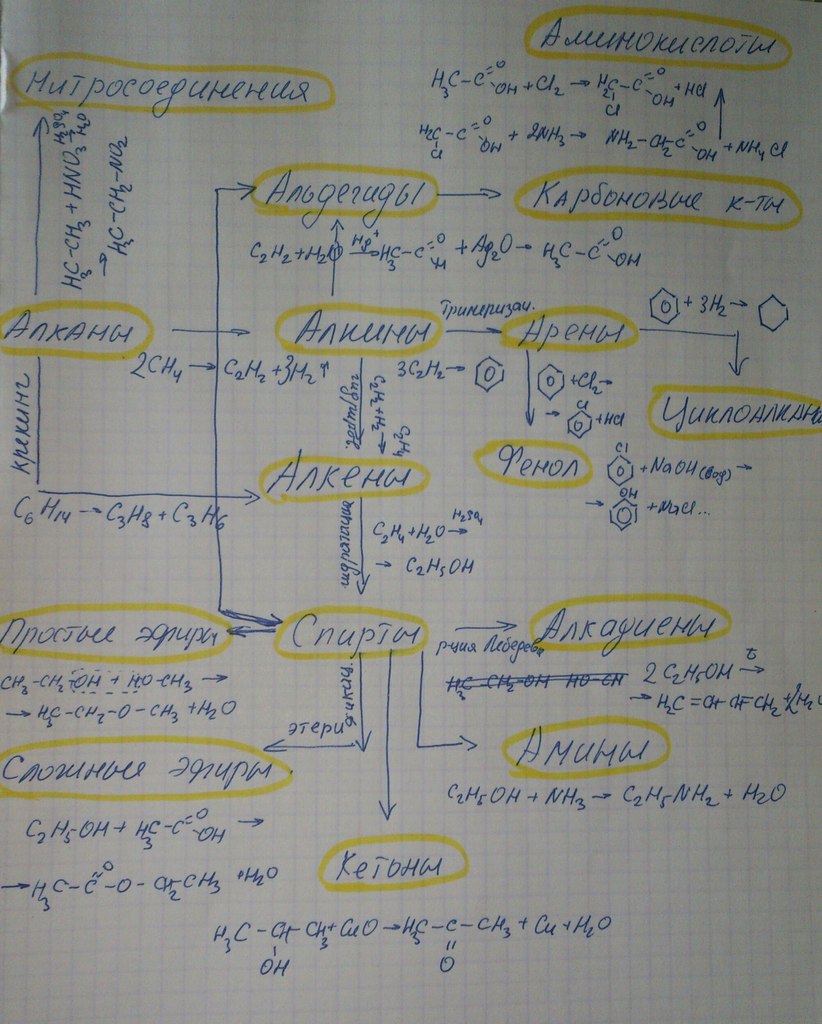 Аминокислоты
H3C-C=O OH + Cl2 → H2C-C=O OH + HCl
Cl
H2C-C=O OH + 2NH3 → NH2-CH2-C=O OH + NH4Cl
Cl
Нитросоединения
H3C-CH3 + HNO3 H2SO4 H2O
→ H3C-CH2-NO2
Альдегиды → Карбоновые к-ты
C2H2 + H2O Hg+ → H3C-C=O H + Ag2O → H3C-C=O OH
Алканы → Алкины Тримеризац. → Арены
+ 3H2 →
2CH4 → C2H2 + 3H2↑
3C2H2 →
+ Cl2 →
→ Cl + HCl
Циклоалканы
крекинг
гидриров.
C2H2 + H2
→ C2H4
Алкены
Фенол
Cl + NaOH (вод) →
→ OH + NaCl...
C6H14 → C3H8 + C3H6
гидратация
C2H4 + H2O H2SO4 →
→ C2H5OH
Простые эфиры
Спирты
Алкадиены
р-ция Лебедева
CH3-CH2-OH + HO-CH3 →
→ H3C-CH2-O-CH3 + H2O
H3C-CH2-OH HO-CH
2C2H5OH t →
→ H2C=CH-CH=CH2 + 2H2O
этерификац.
Сложные эфиры
Амины
C2H5OH + NH3 → C2H5NH2 + H2O
C2H5OH + H3C-C=O OH →
→ H3C-C=O-O-CH2CH3 + H2O
Кетоны
H3C-CH-CH3 + CuO → H3C-C-CH3 + Cu + H2O
OH O